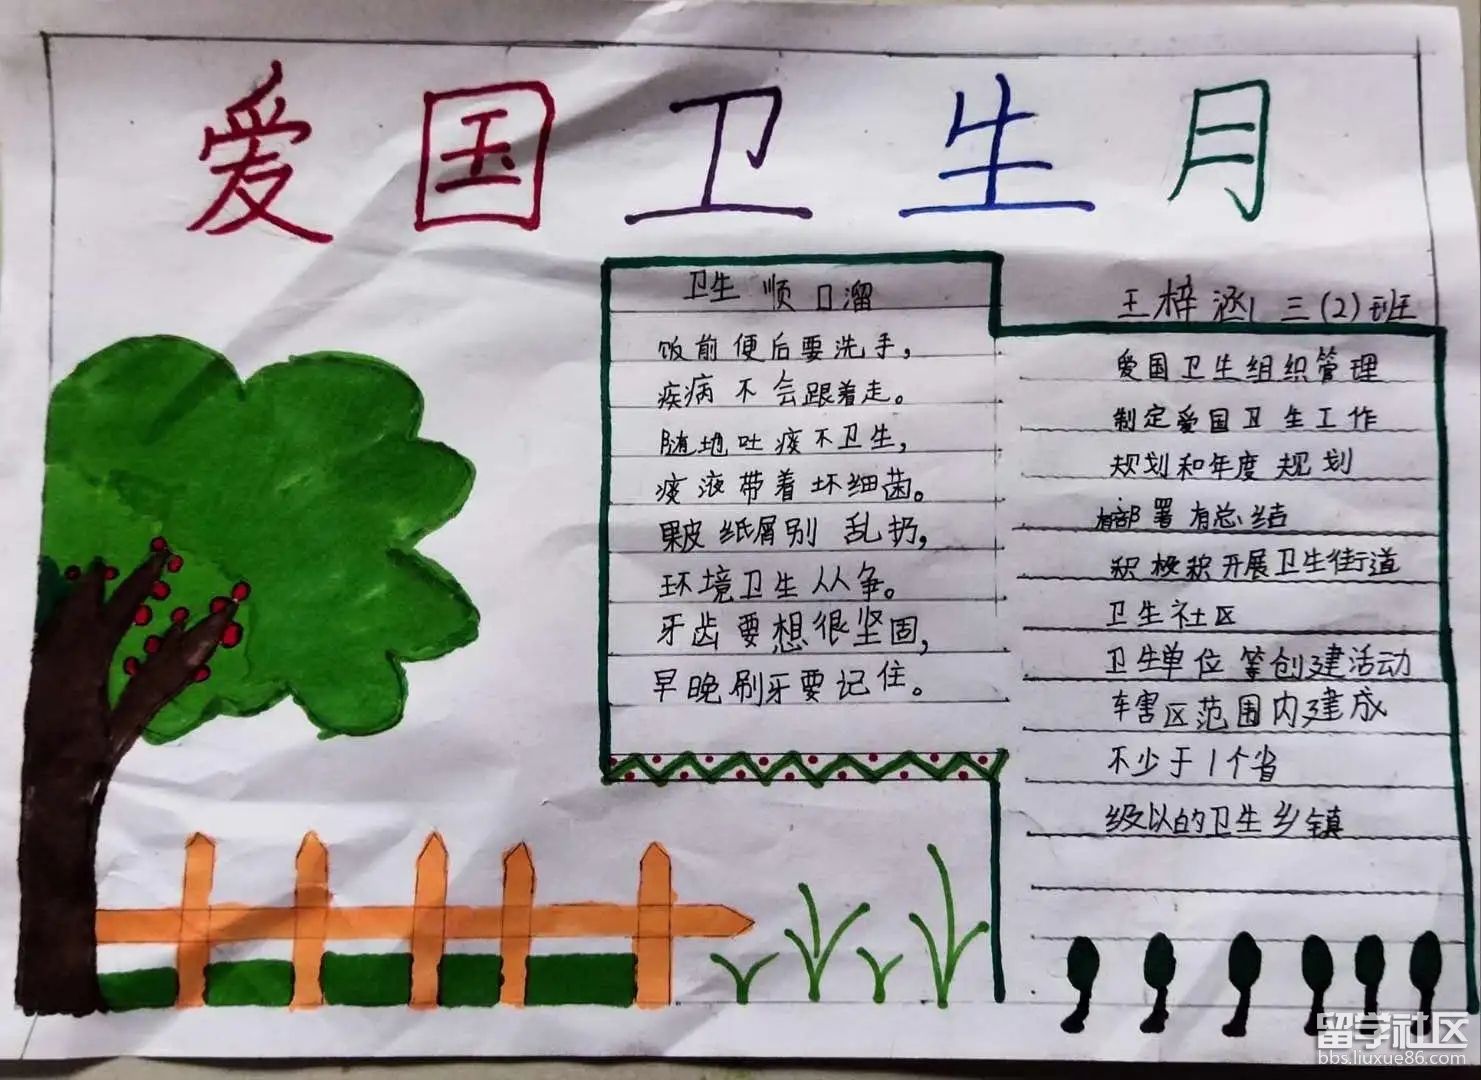 爱国卫生月
卫生顺口溜
饭前便后要洗手，
疾病不会跟着走。
随地吐痰不卫生，
痰液带着坏细菌。
果皮纸屑别乱扔，
环境卫生从人争。
牙齿要想很坚固，
早晚刷牙要记住。
王梓涵 三(2)班
爱国卫生组织管理
制定爱国卫生工作
规划和年度规划
有部署有总结
积极积开展卫生街道
卫生社区
卫生单位等创建活动
车害区范围内建成
不少于1个省
级以的卫生乡镇
留学社区
bbs.liuxue86.com